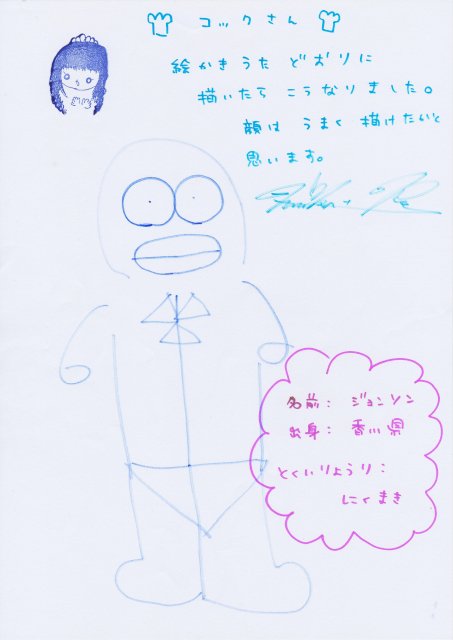 コックさん
絵かきうた どおりに
描いたら こうなりました。
顔は うまく 描けたかと
思います。
名前： ジョンソン
出身： 香川県
とくいりょうり：
にくまき